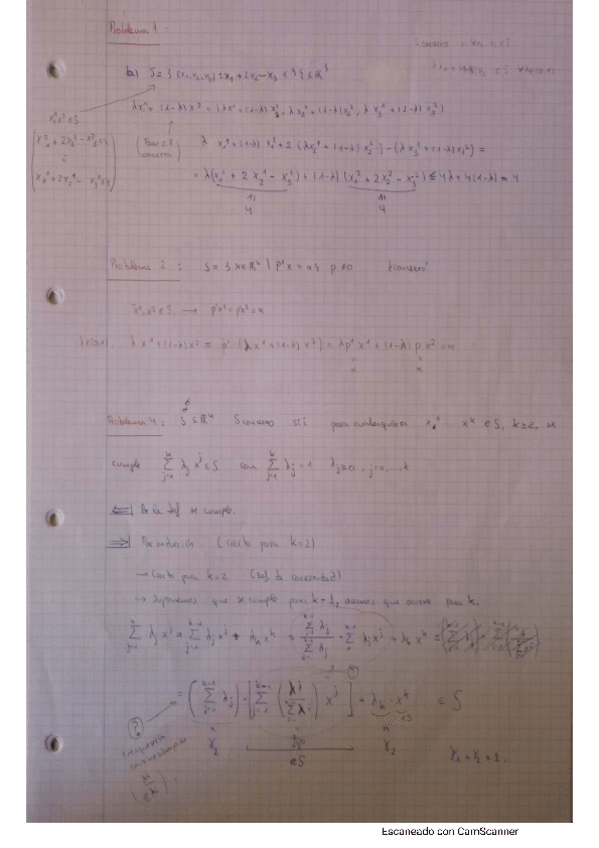 Problema 1:
S convexo
b) S = { (x₁, x₂, x₃) : x₁ + 2x₂ - x₃ ≤ 4 } ⊆ ℝ³
x¹, x² ∈ S
λx¹ + (1-λ)x² = (λx₁¹ + (1-λ)x₁², λx₂¹ + (1-λ)x₂², λx₃¹ + (1-λ)x₃²)
λx₁¹ + (1-λ)x₁² + 2(λx₂¹ + (1-λ)x₂²) - (λx₃¹ + (1-λ)x₃²) =
= λ(x₁¹ + 2x₂¹ - x₃¹) + (1-λ)(x₁² + 2x₂² - x₃²) ≤ 4λ + 4(1-λ) = 4
Problema 2: S = { x ∈ ℝⁿ | pᵗx = α } p ≠ 0 ¿convexo?
x¹, x² ∈ S → pᵗx¹ = pᵗx² = α
λx¹ + (1-λ)x² = pᵗ(λx¹ + (1-λ)x²) = λpᵗx¹ + (1-λ)pᵗx² = α
Problema 4: S ⊆ ℝⁿ S convexo sii para cualesquiera x¹ ... xᵏ ∈ S, k≥2, se
cumple Σ λⱼ xʲ ∈ S con Σ λⱼ = 1 λⱼ ≥ 0, j=1,...,k
⇐ Por la def se cumple.
⇒ Por inducción (cierto para k=2)
→ Cierto para k=2 (Def de convexidad)
→ Suponemos que se cumple para k-1, veamos que ocurre para k.
Σ λⱼ xʲ = Σ λⱼ xʲ + λₖ xᵏ = (Σ λⱼ / Σ λⱼ) · Σ λⱼ xʲ + λₖ xᵏ =
= (Σ λⱼ) · [Σ (λⱼ / Σ λᵢ) xʲ] + λₖ · xᵏ ∈ S
∈S
γ₂
γ₁ + γ₂ = 1.
Escaneado con CamScanner